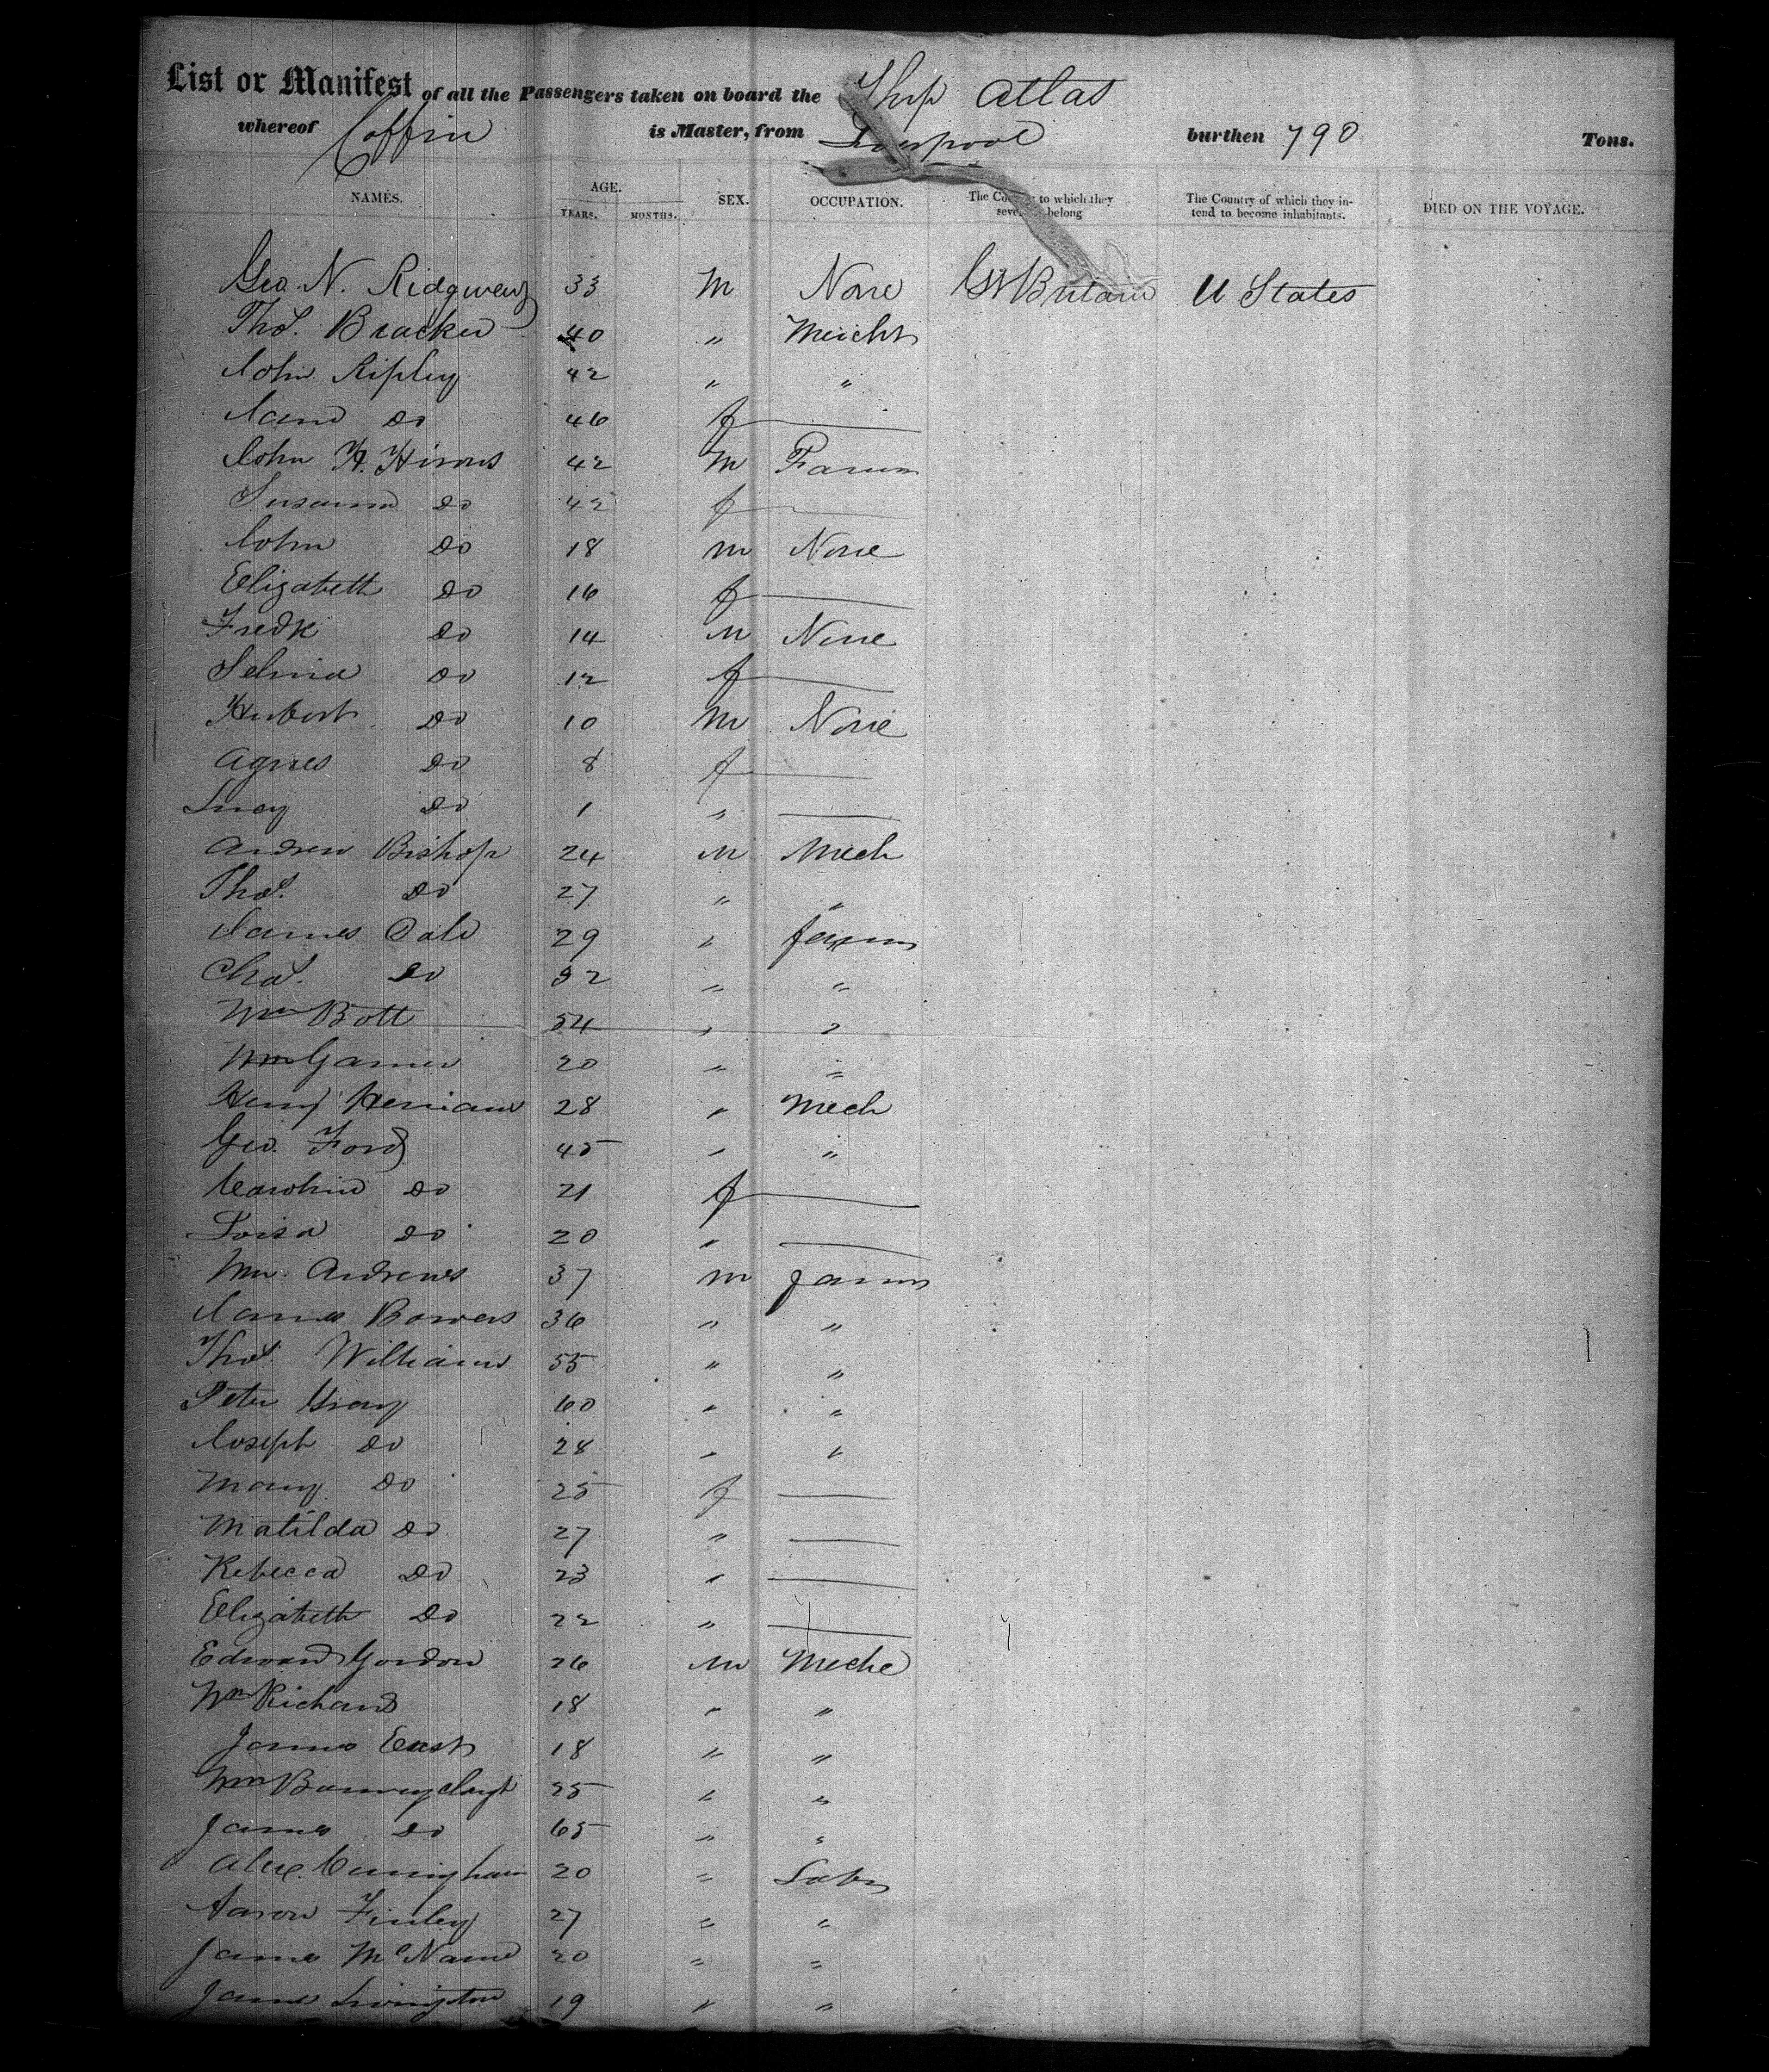 List or Manifest of all the Passengers taken on board the Ship Atlas
whereof Coffin is Master, from Liverpool burthen 790 Tons.
NAMES. AGE. YEARS. MONTHS. SEX. OCCUPATION. The Country to which they severally belong The Country of which they intend to become inhabitants. DIED ON THE VOYAGE.
Geo. N. Ridgway 33 M None Gt Britain U States
Thos. Bracker 40 " Mercht
John Ripley 42 " "
Jane Do 46 f
John H. Hirons 42 M Farmr
Susanna Do 42 f
John Do 18 m None
Elizabeth Do 16 f
Fredk Do 14 M None
Selina Do 12 f
Hubert Do 10 M None
Agnes Do 8 f
Lucy Do 1 "
Andrew Bishop 24 M Mech
Thos. Do 27 " "
James Dale 29 " farmr
Chas. Do 32 " "
Wm Bott 54 " "
Wm Garner 20 " "
Henry 28 " Mech
Geo. Ford 45 " "
Caroline Do 21 f
Loisa Do 20 "
Wm. Andrews 37 m farmr
James Bowers 36 " "
Thos. Williams 55 " "
Peter Gray 60 " "
Joseph Do 28 " "
Mary Do 25 f
Matilda Do 27 "
Rebecca Do 23 "
Elizabeth Do 22 "
Edward Gordon 26 M Mechc
Wm Richard 18 " "
James East 18 " "
Wm 25 " "
James Do 65 " "
Alex. Cuningham 20 " Labr
Aaron Finley 27 " "
James McName 20 " "
James Livingston 19 " "